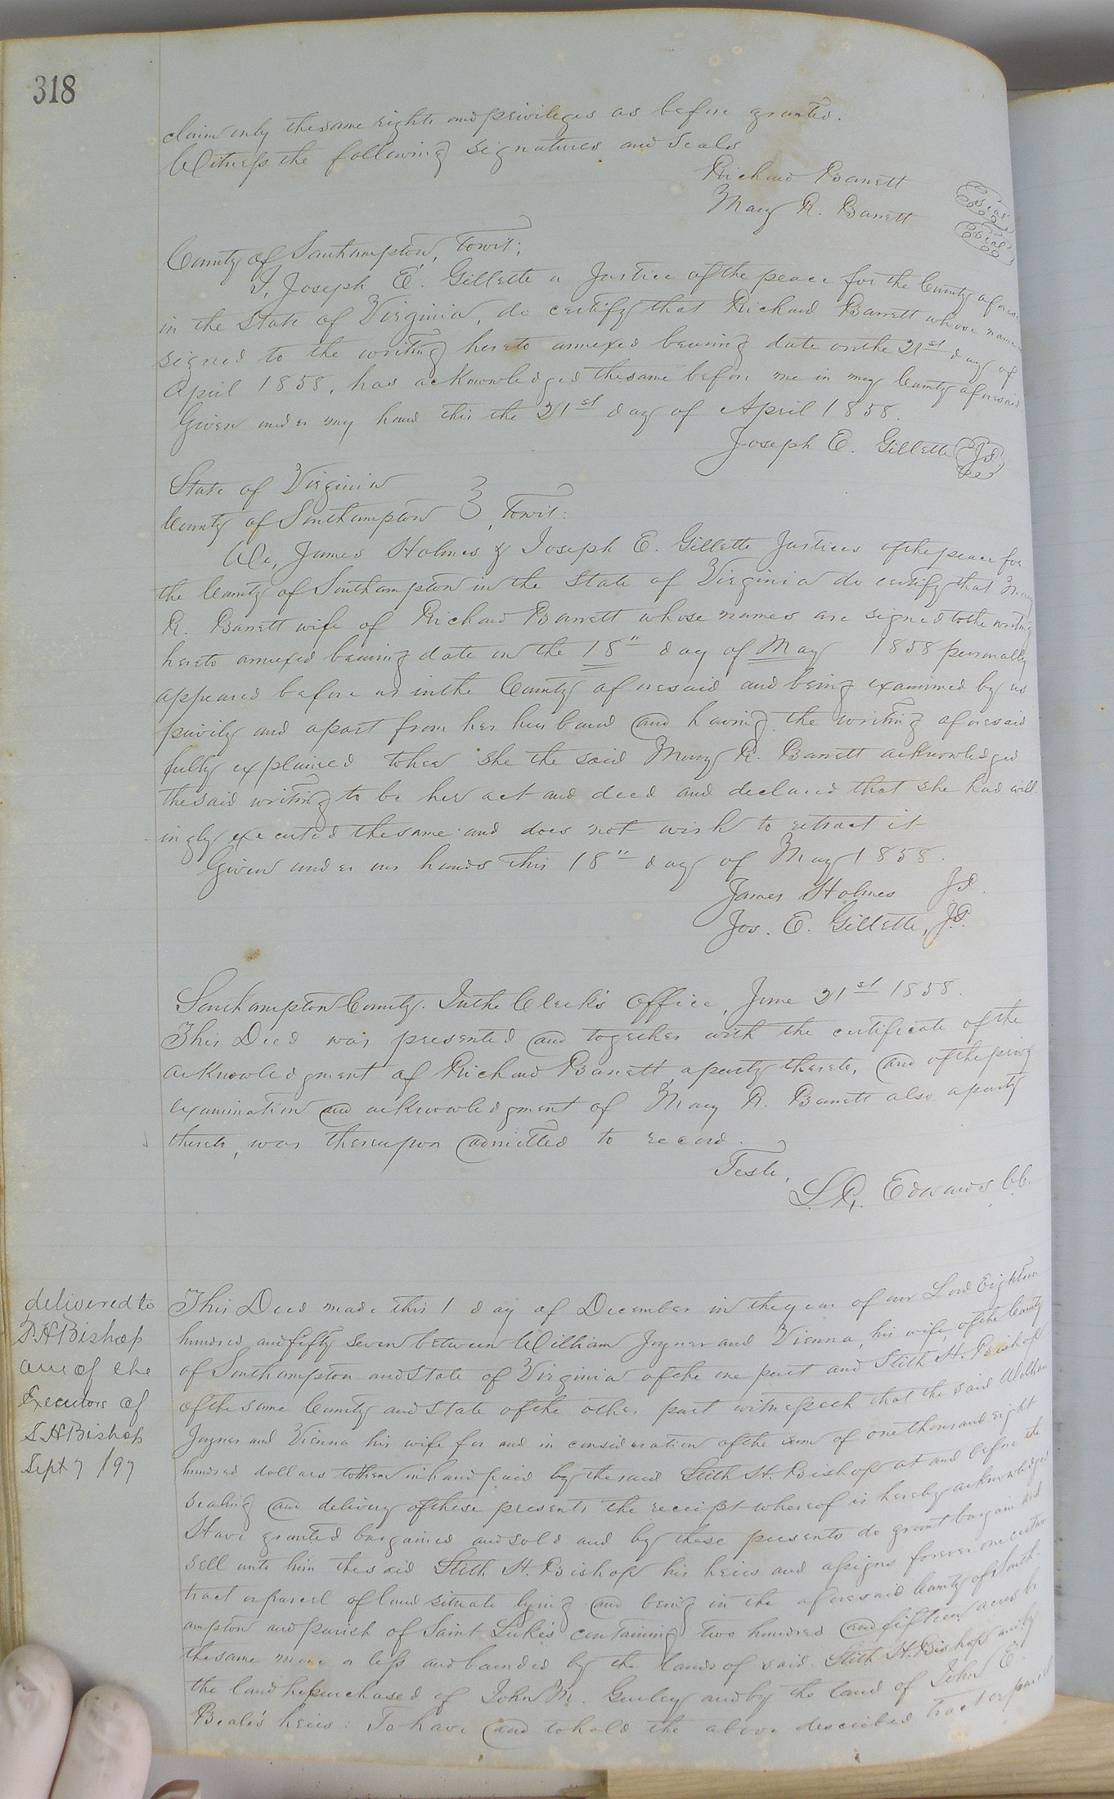 318
claim only the same rights and privileges as before granted.
Witness the following signatures and seals
Richard Barrett
Mary R. Barrett
Seal
Seal
County of Southampton, Towit;
I, Joseph E. Gillette a Justice of the peace for the County afores
in the State of Virginia, do certify that Richard Barrett whose name
signed to the writing hereto annexed bearing date on the 21st day of
April 1858, has acknowledged the same before me in my County aforesaid
Given under my hand this the 21st day of April 1858.
Joseph E. Gillette
State of Virginia
County of Southampton, Towit:
We, James Holmes & Joseph E. Gillette Justices of the peace for
the County of Southampton in the State of Virginia do certify that Mary
R. Barrett wife of Richard Barrett whose names are signed to the writing
hereto annexed bearing date on the 18" day of May 1858 personally
appeared before us in the County aforesaid and being examined by us
privily and apart from her husband and having the writing aforesaid
fully explained to her she the said Mary R. Barrett acknowledged
the said writing to be her act and deed and declared that she had will
ingly executed the same and does not wish to retract it
Given under our hands this 18" day of May 1858.
James Holmes J.P.
Jos. E. Gillette, J.P.
Southampton County. In the Clerk's Office, June 21st 1858.
This Deed was presented and together with the certificate of the
acknowledgment of Richard Barrett, a party thereto, and of the privy
examination and acknowledgment of Mary R. Barrett also a party
thereto, was thereupon admitted to record.
Teste,
L.R. Edwards C.C.
delivered to
one of the
Executors of
S.H Bishop
Sept 7 /97
This Deed made this 1 day of December in the year of our Lord Eighteen
hundred and fifty seven between William Joyner and Vienna, his wife, of the County
of Southampton and State of Virginia of the one part and Stith H. Bishop
of the same County and State of the other part witnesseth that the said William
Joyner and Vienna his wife for and in consideration of the sum of one thousand eight
hundred dollars to them in hand paid by the said Stith H. Bishop at and before the
sealing and delivery of these presents the receipt whereof is hereby acknowledged
Have granted bargained and sold and by these presents do grant bargain and
sell unto him the said Stith H. Bishop his heirs and assigns forever one certain
tract or parcel of land situate lying and being in the aforesaid County of South-
ampton and parish of Saint Lukes containing two hundred and fifteen acres be
the same more or less and bounded by the lands of said Stith H. Bishop and by
the land he purchased of John M. Gurley and by the land of John E.
Beale's heirs: To have and to hold the above described tract or parcel